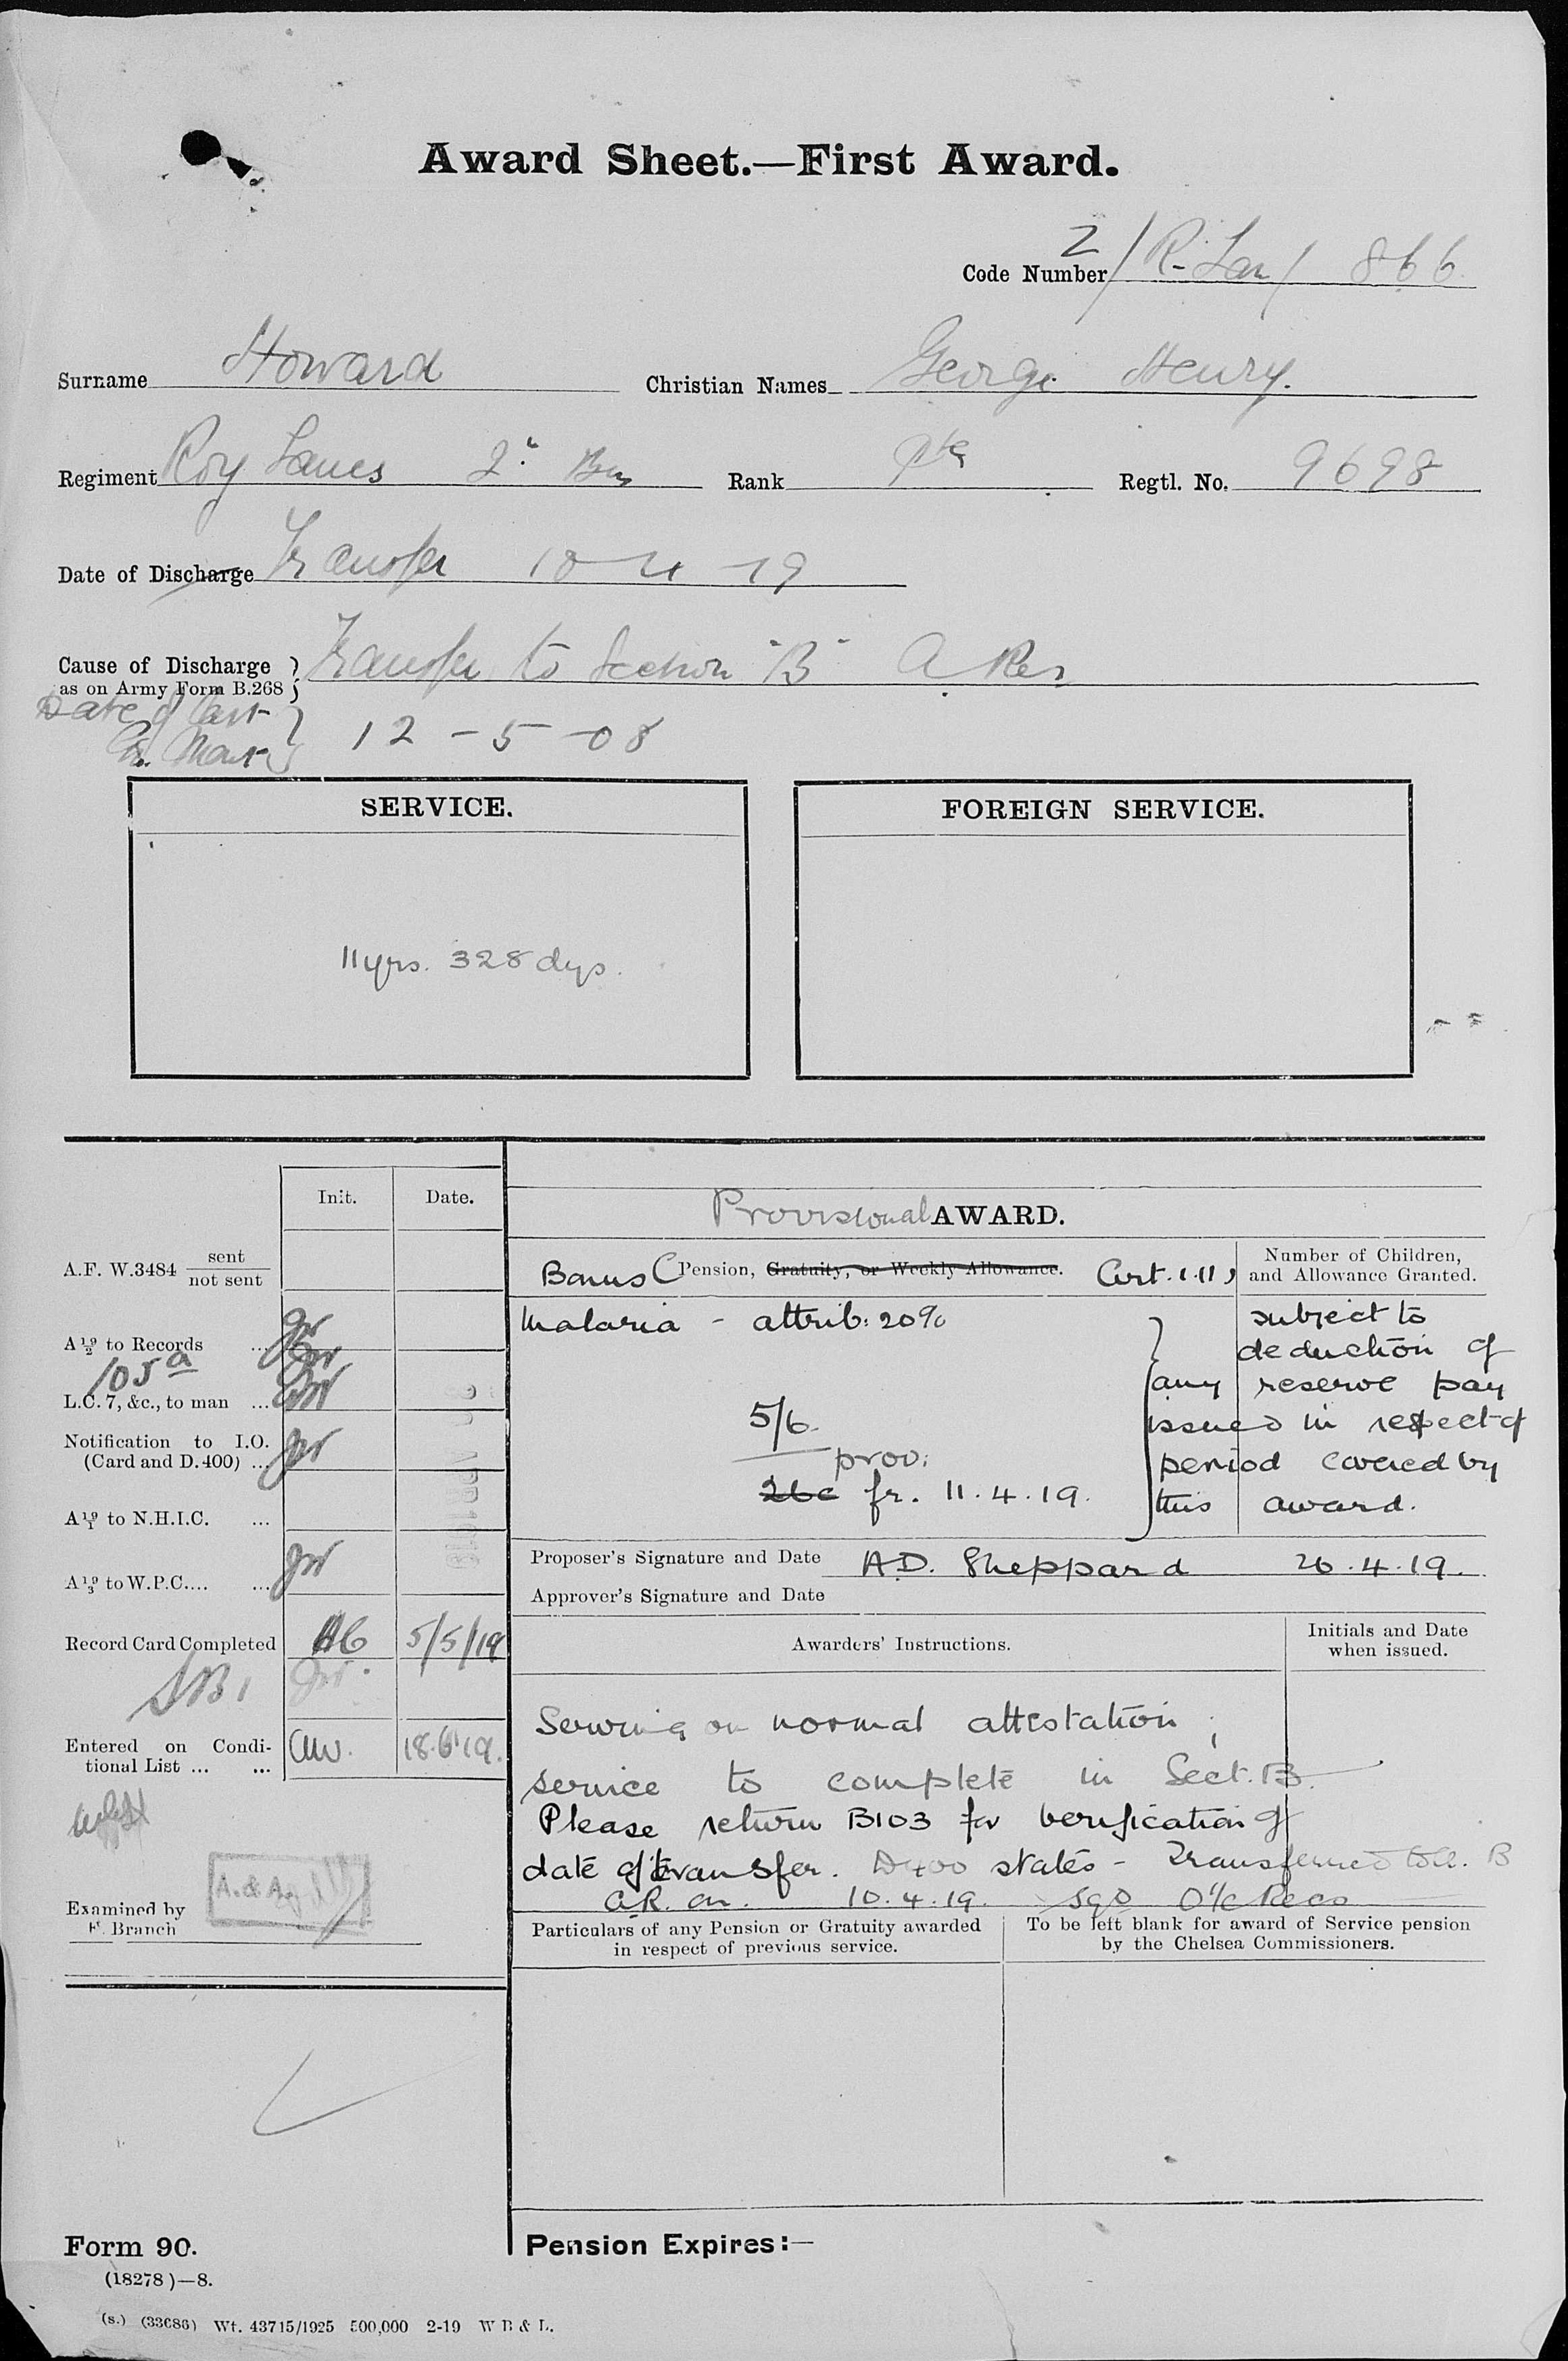 Award Sheet.—First Award.
Code Number 2/R. Lan/ 866
Surname Howard Christian Names George Henry.
Regiment Roy Lancs 2nd Bn Rank Pte Regtl. No. 9698
Date of Discharge Transfer 10-4-19
Cause of Discharge as on Army Form B.268 } Transfer to Section "B" A Res
Date of last 12-5-08
SERVICE. FOREIGN SERVICE.
11 yrs. 328 dys.
Init. Date.
Provisional AWARD.
A.F. W.3484 sent / not sent
Bonus Pension, Gratuity, or Weekly Allowance. Art. 1.(1)
Number of Children, and Allowance Granted.
Malaria - attrib: 20%
subject to
deduction of
any reserve pay
issued in respect of
period covered by
this award.
5/6.
prov:
26c fr. 11.4.19.
A 19/2 to Records ... JW
105a
L.C. 7, &c., to man ...
Notification to I.O.
(Card and D.400) ... JW
A 19/1 to N.H.I.C. ...
A 19/3 to W.P.C.... ... JW
Proposer's Signature and Date A.D. Sheppard 26.4.19.
Approver's Signature and Date
Record Card Completed 5/5/19
SB1
Awarders' Instructions. Initials and Date when issued.
Entered on Condi-
tional List ... ... 18.6.19.
Serving on normal attestation;
service to complete in Sect. B.
Please return B103 for verification of
date of transfer. D400 states - Transferred to Cl. B
A.R. on. 10.4.19. Sgd O i/c Recs
Examined by
F. Branch
A. & A.
Particulars of any Pension or Gratuity awarded
in respect of previous service.
To be left blank for award of Service pension
by the Chelsea Commissioners.
Form 90.
Pension Expires:—
(18278)—8.
(s.) (33686) Wt. 43715/1925 500,000 2-19 W B & L.